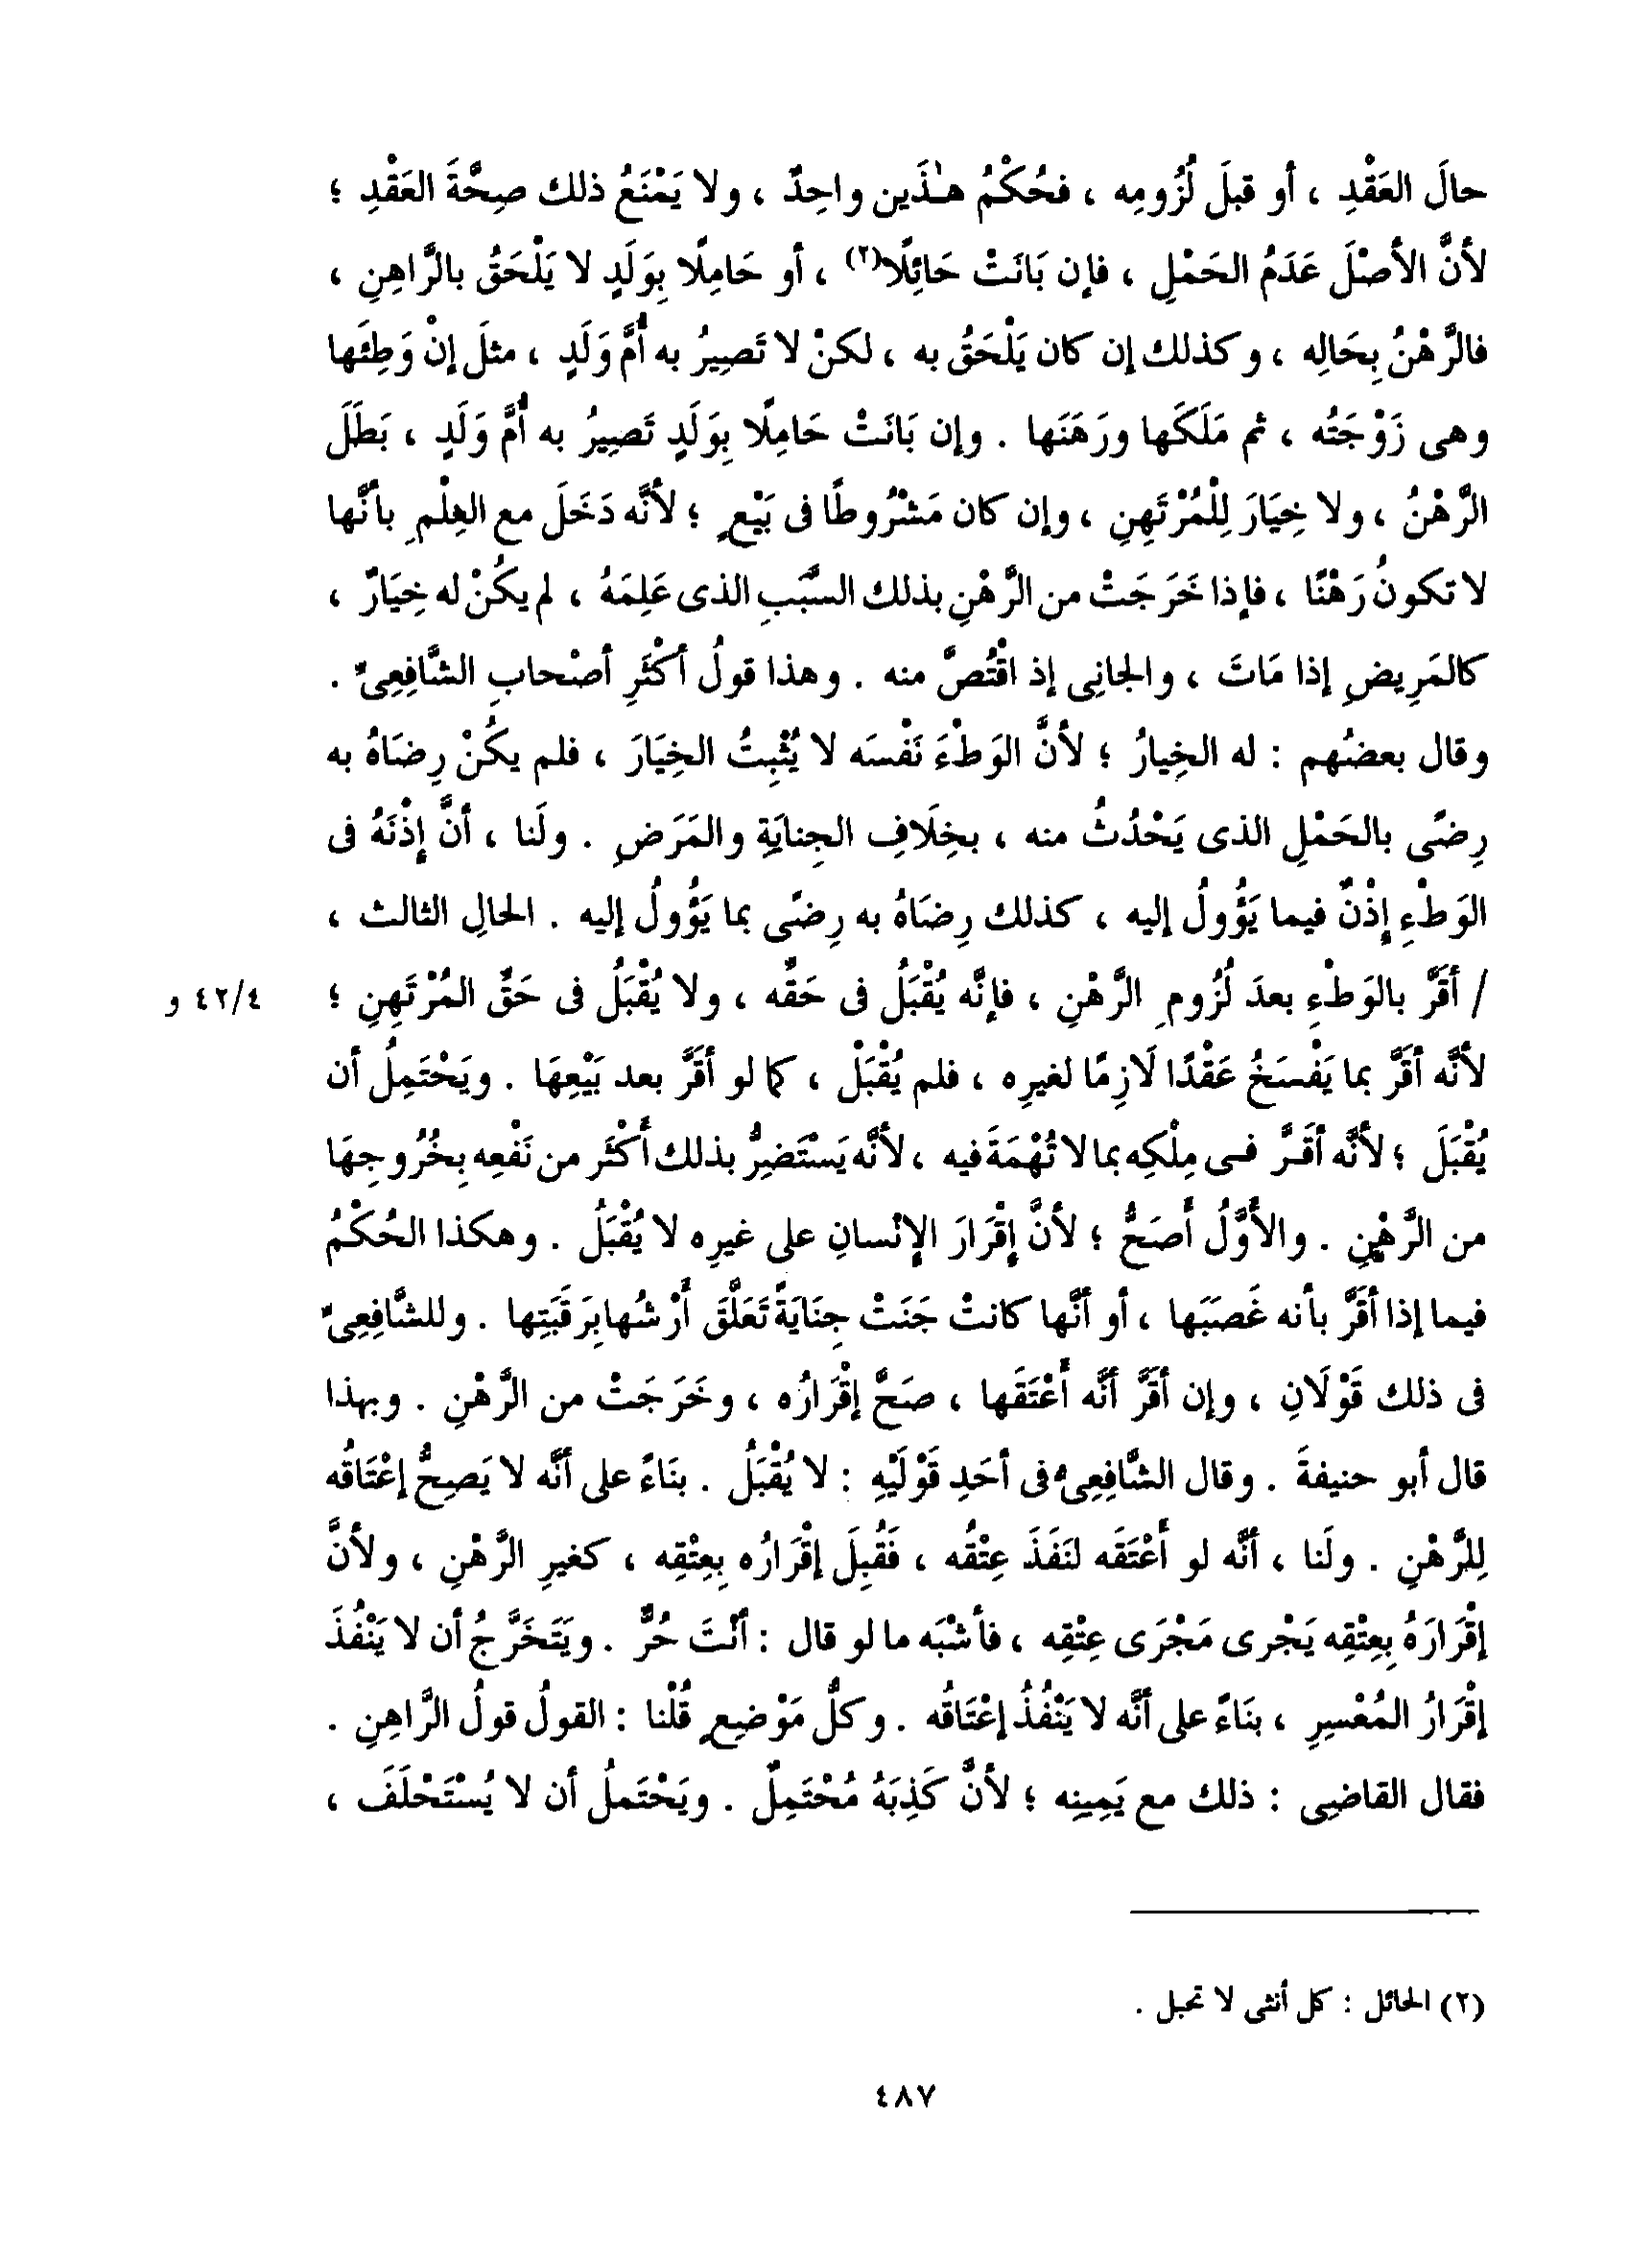 حالَ العَقْدِ ، أو قبلَ لُزُومِه ، فحُكْمُ هـٰذَين واحِدٌ ، ولا يَمْنَعُ ذلك صِحَّةَ العَقْدِ ؛
لأنَّ الأصْلَ عَدَمُ الحَمْلِ ، فإن بَانَتْ حَائِلًا(٢) ، أو حَامِلًا بِوَلَدٍ لا يَلْحَقُ بالرَّاهِنِ ،
فالرَّهْنُ بِحَالِه ، وكذلك إن كان يَلْحَقُ به ، لكنْ لا تَصِيرُ به أُمَّ وَلَدٍ ، مثلَ إنْ وَطِئَها
وهى زَوْجَتُه ، ثم مَلَكَها ورَهَنَها . وإن بَانَتْ حَامِلًا بِوَلَدٍ تَصِيرُ به أُمَّ وَلَدٍ ، بَطَلَ
الرَّهْنُ ، ولا خِيَارَ لِلْمُرْتَهِنِ ، وإن كان مَشْرُوطًا فى بَيْعٍ ؛ لأنَّه دَخَلَ مع العِلْمِ بأنَّها
لا تكونُ رَهْنًا ، فإذا خَرَجَتْ من الرَّهْنِ بذلك السَّبَبِ الذى عَلِمَهُ ، لم يكُنْ له خِيَارٌ ،
كالمَرِيضِ إذا مَاتَ ، والجانِى إذ اقْتُصَّ منه . وهذا قولُ أكْثَرِ أصْحابِ الشَّافِعِىِّ .
وقال بعضُهم : له الخِيارُ ؛ لأنَّ الوَطْءَ نَفْسَه لا يُثْبِتُ الخِيَارَ ، فلم يكُنْ رِضَاهُ به
رِضًى بالحَمْلِ الذى يَحْدُثُ منه ، بخِلَافِ الجِنايَةِ والمَرَضِ . ولَنا ، أنَّ إِذْنَهُ فى
الوَطْءِ إِذْنٌ فيما يَؤُولُ إليه ، كذلك رِضَاهُ به رِضًى بما يَؤُولُ إليه . الحالِ الثالث ،
/ أقَرَّ بالوَطْءِ بعدَ لُزُومِ الرَّهْنِ ، فإنَّه يُقْبَلُ فى حَقِّه ، ولا يُقْبَلُ فى حَقِّ المُرْتَهِنِ ؛ ٤٢/٤ و
لأنَّه أقَرَّ بما يَفْسَخُ عَقْدًا لَازِمًا لغيرِه ، فلم يُقْبَلْ ، كما لو أقَرَّ بعد بَيْعِهَا . ويَحْتَمِلُ أن
يُقْبَلَ ؛ لأنَّه أقَرَّ فى مِلْكِه بما لا تُهْمَةَ فيه ، لأنَّه يَسْتَضِرُّ بذلك أَكْثَر من نَفْعِه بِخُرُوجِهَا
من الرَّهْنِ . والأَوَّلُ أَصَحُّ ؛ لأنَّ إقْرَارَ الإنْسانِ على غيرِه لا يُقْبَلُ . وهكذا الحُكْمُ
فيما إذا أقَرَّ بأنه غَصَبَها ، أو أنَّها كانتْ جَنَتْ جِنَايَةً تَعَلَّقَ أَرْشُها بِرَقَبَتِها . وللشَّافِعِىِّ
فى ذلك قَوْلَانِ ، وإن أقَرَّ أنَّه أَعْتَقَها ، صَحَّ إقْرَارُه ، وخَرَجَتْ من الرَّهْنِ . وبهذا
قال أبو حنيفةَ . وقال الشَّافِعِىُّ فى أحَدِ قَوْلَيْهِ : لا يُقْبَلُ . بنَاءً على أنَّه لا يَصِحُّ إعْتَاقُه
لِلرَّهْنِ . ولَنا ، أنَّه لو أَعْتَقَه لنَفَذَ عِتْقُه ، فَقُبِلَ إقْرَارُه بِعِتْقِه ، كغيرِ الرَّهْنِ ، ولأنَّ
إقْرَارَهُ بِعِتْقِه يَجْرِى مَجْرَى عِتْقِه ، فأشْبَه ما لو قال : أنْتَ حُرٌّ . ويَتَخَرَّجُ أن لا يَنْفُذَ
إقْرَارُ المُعْسِرِ ، بنَاءً على أنَّه لا يَنْفُذُ إعْتَاقُه . وكلُّ مَوْضِعٍ قُلْنا : القولُ قولُ الرَّاهِنِ .
فقال القاضِى : ذلك مع يَمِينِه ؛ لأنَّ كَذِبَهُ مُحْتَمِلٌ . ويَحْتَمِلُ أن لا يُسْتَحْلَفَ ،
(٢) الحائل : كل أنثى لا تحبل .
٤٨٧